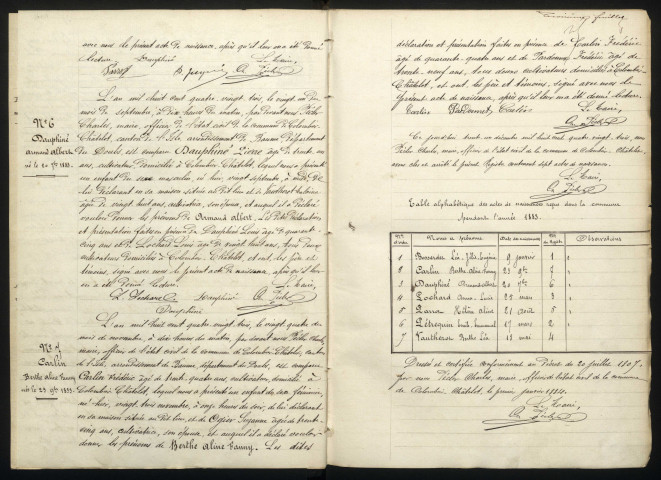 avec nous le présent acte de naissance, après qu'il leur en a été donné
lecture Dauphiné Le Maire,
Nº 6
Dauphiné
Armand Albert
né le 20 7bre 1883.
L'an mil huit cent quatre vingt trois, le vingt un du
mois de septembre, à dix heures du matin, par devant nous
Charles, maire, officier de l'état civil de la commune de Colombier
Châtelot, canton de l'Isle, arrondissement de Baume, département
du Doubs, est comparu Dauphiné Pierre âgé de trente
ans, cultivateur, domicilié à Colombier Châtelot, lequel nous a présenté
un enfant du sexe masculin, né hier, vingt septembre, à
déclarant en sa maison située au dit lieu et de
âgée de vingt huit ans, cultivatrice, son épouse, et auquel il a déclaré
vouloir donner les prénoms de Armand Albert. Les dites déclaration
et présentation faites en présence de Dauphiné Louis âgé de quarante
cinq ans et de Lochard Louis âgé de vingt huit ans, tous deux
cultivateurs domiciliés à Colombier Châtelot, et ont les père et
témoins, signé avec nous le présent acte de naissance, après qu'il leur
en a été donné lecture. Le Maire,
L. Lochard Dauphiné
Dauphiné
Nº 7
Carlin
Berthe Aline Fanny
née le 23 9bre 1883.
L'an mil huit cent quatre vingt trois, le vingt quatre du
mois de novembre, à dix heures du matin, par devant nous
maire, officier de l'état civil de la commune de Colombier Châtelot, canton
de l'Isle, arrondissement de Baume, département du Doubs, est comparu
Carlin Frédéric âgé de trente quatre ans, cultivateur, domicilié à
Colombier Châtelot, lequel nous a présenté un enfant du sexe féminin,
né hier, vingt trois novembre, à onze heures du soir, de lui déclarant
en sa maison située au dit lieu, et de Ogier Suzanne âgée de trente
cinq ans, cultivatrice, son épouse, et auquel il a déclaré vouloir
donner les prénoms de Berthe Aline Fanny. Les dites
déclaration et présentation faites en présence de Carlin Frédéric
âgé de quarante quatre ans et de Pardonnet Frédéric âgé de
trente neuf ans, tous deux cultivateurs domiciliés à Colombier
Châtelot, et ont les père et témoins, signé avec nous le
présent acte de naissance, après qu'il leur en a été donné lecture.
Carlin Pardonnet Carlin Le Maire,
Ce jourd'hui trente un décembre mil huit cent quatre vingt trois, nous
Charles, maire, officier de l'état civil de la commune de Colombier Châtelot
avons clos et arrêté le présent registre contenant sept actes de naissance.
Le Maire,
Table alphabétique des actes de naissance reçus dans la commune
pendant l'année 1883.
Nos d'ordre Noms et prénoms Dates des naissances Nos du Registre Observations
1 9 février 1
2 Carlin Berthe Aline Fanny 23 9bre 7
3 Dauphiné Armand Albert 20 7bre 6
4 Lochard Louis 25 mars 3
5 21 août 5
6 17 mars 2
7 Berthe Léa 13 mai 4
Dressé et certifié conformément au Décret du 20 juillet 1807,
par nous Charles, maire, officier de l'état civil de la commune
de Colombier Châtelot, le premier janvier 1884.
Le Maire,